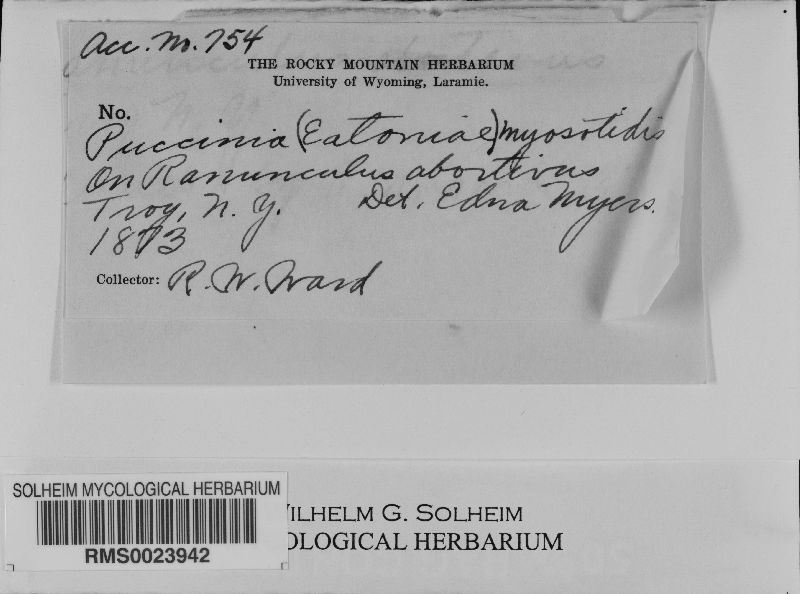 Acc. No. 754
THE ROCKY MOUNTAIN HERBARIUM
University of Wyoming, Laramie.
No.
Puccinia (Eatoniae) myosotidis
On Ranunculus abortivus
Troy, N. Y. Det. Edna Myers.
1873
Collector: R. W. Ward
SOLHEIM MYCOLOGICAL HERBARIUM
RMS0023942
WILHELM G. SOLHEIM
OLOGICAL HERBARIUM